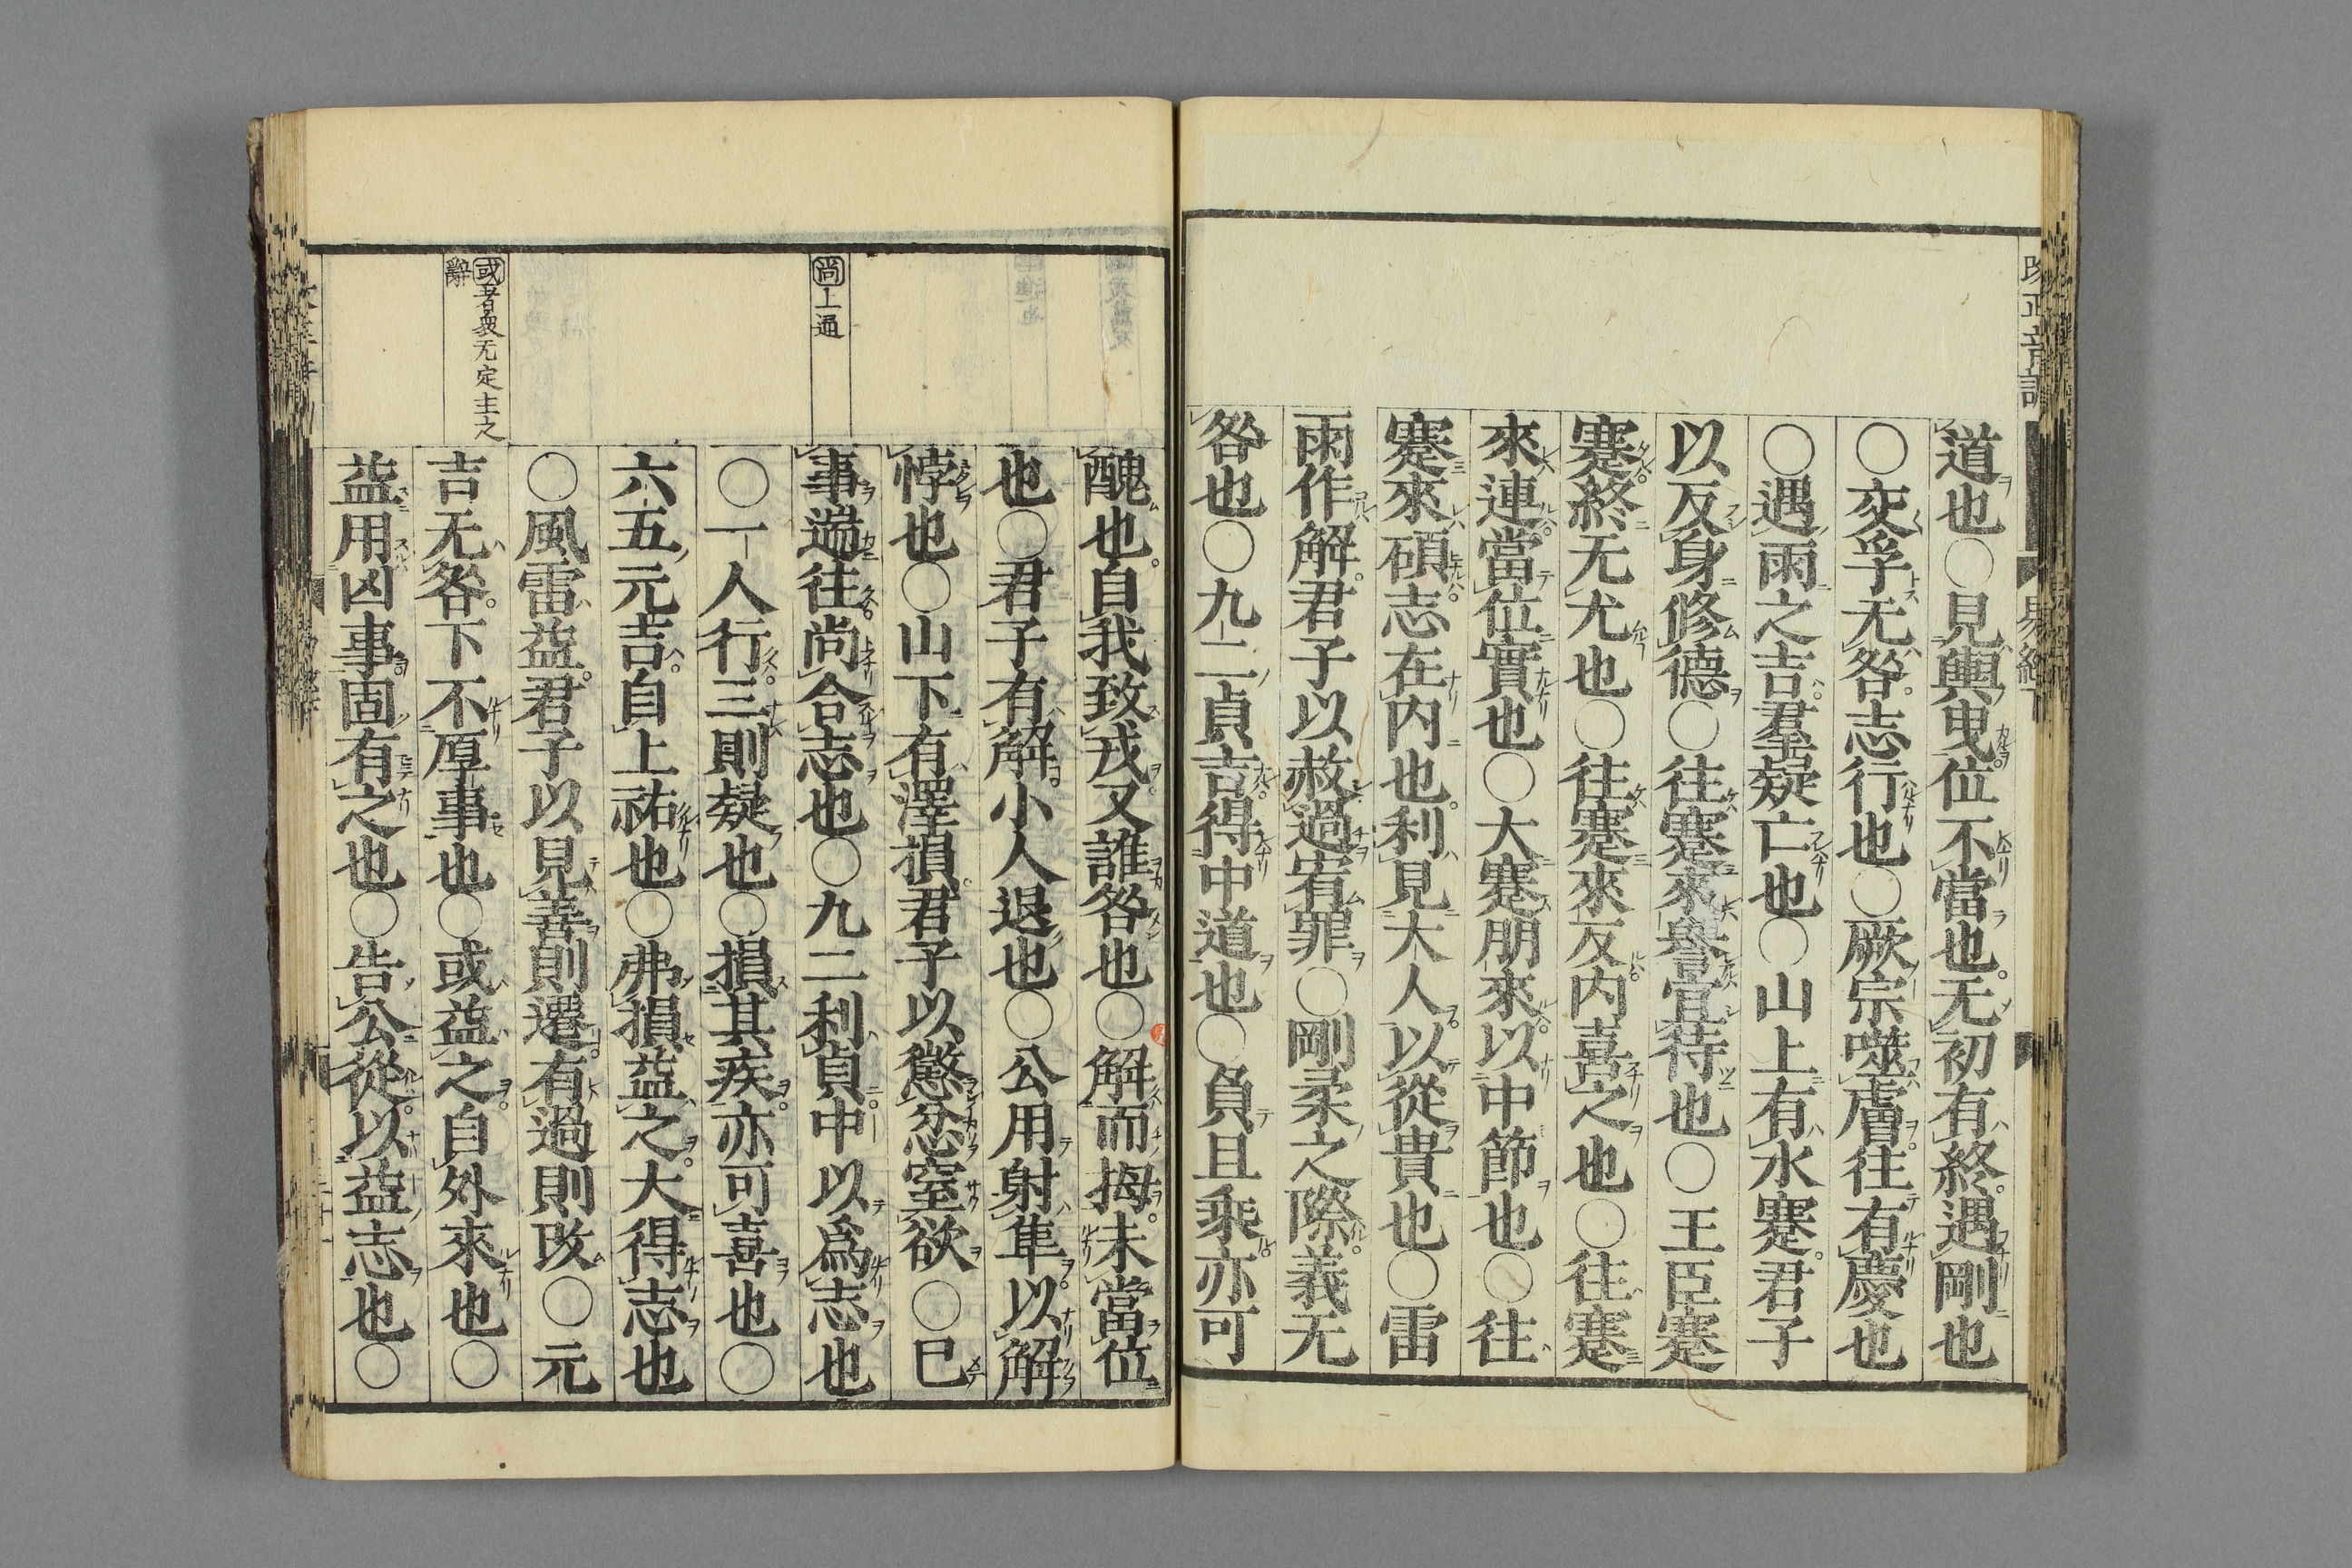 道也○見輿曳位不當也无初有終遇剛也
○交孚无咎志行也○厥宗噬膚往有慶也
○遇雨之吉羣疑亡也○山上有水蹇君子
以反身修德○往蹇來譽宜待也○王臣蹇
蹇終无尤也○往蹇來反內喜之也○往蹇
來連當位實也○大蹇朋來以中節也○往
蹇來碩志在內也利見大人以從貴也○雷
雨作解君子以赦過宥罪○剛柔之際義无
咎也○九二貞吉得中道也○負且乘亦可
醜也自我致戎又誰咎也○解而拇未當位
也○君子有解小人退也○公用射隼以解
悖也○山下有澤損君子以懲忿窒欲○巳
事遄往尚合志也○九二利貞中以爲志也
○一人行三則疑也○損其疾亦可喜也○
六五元吉自上祐也○弗損益之大得志也
○風雷益君子以見善則遷有過則改○元
吉无咎下不厚事也○或益之自外來也○
益用凶事固有之也○告公從以益志也○
尚上通
或者衆无定主之
辭